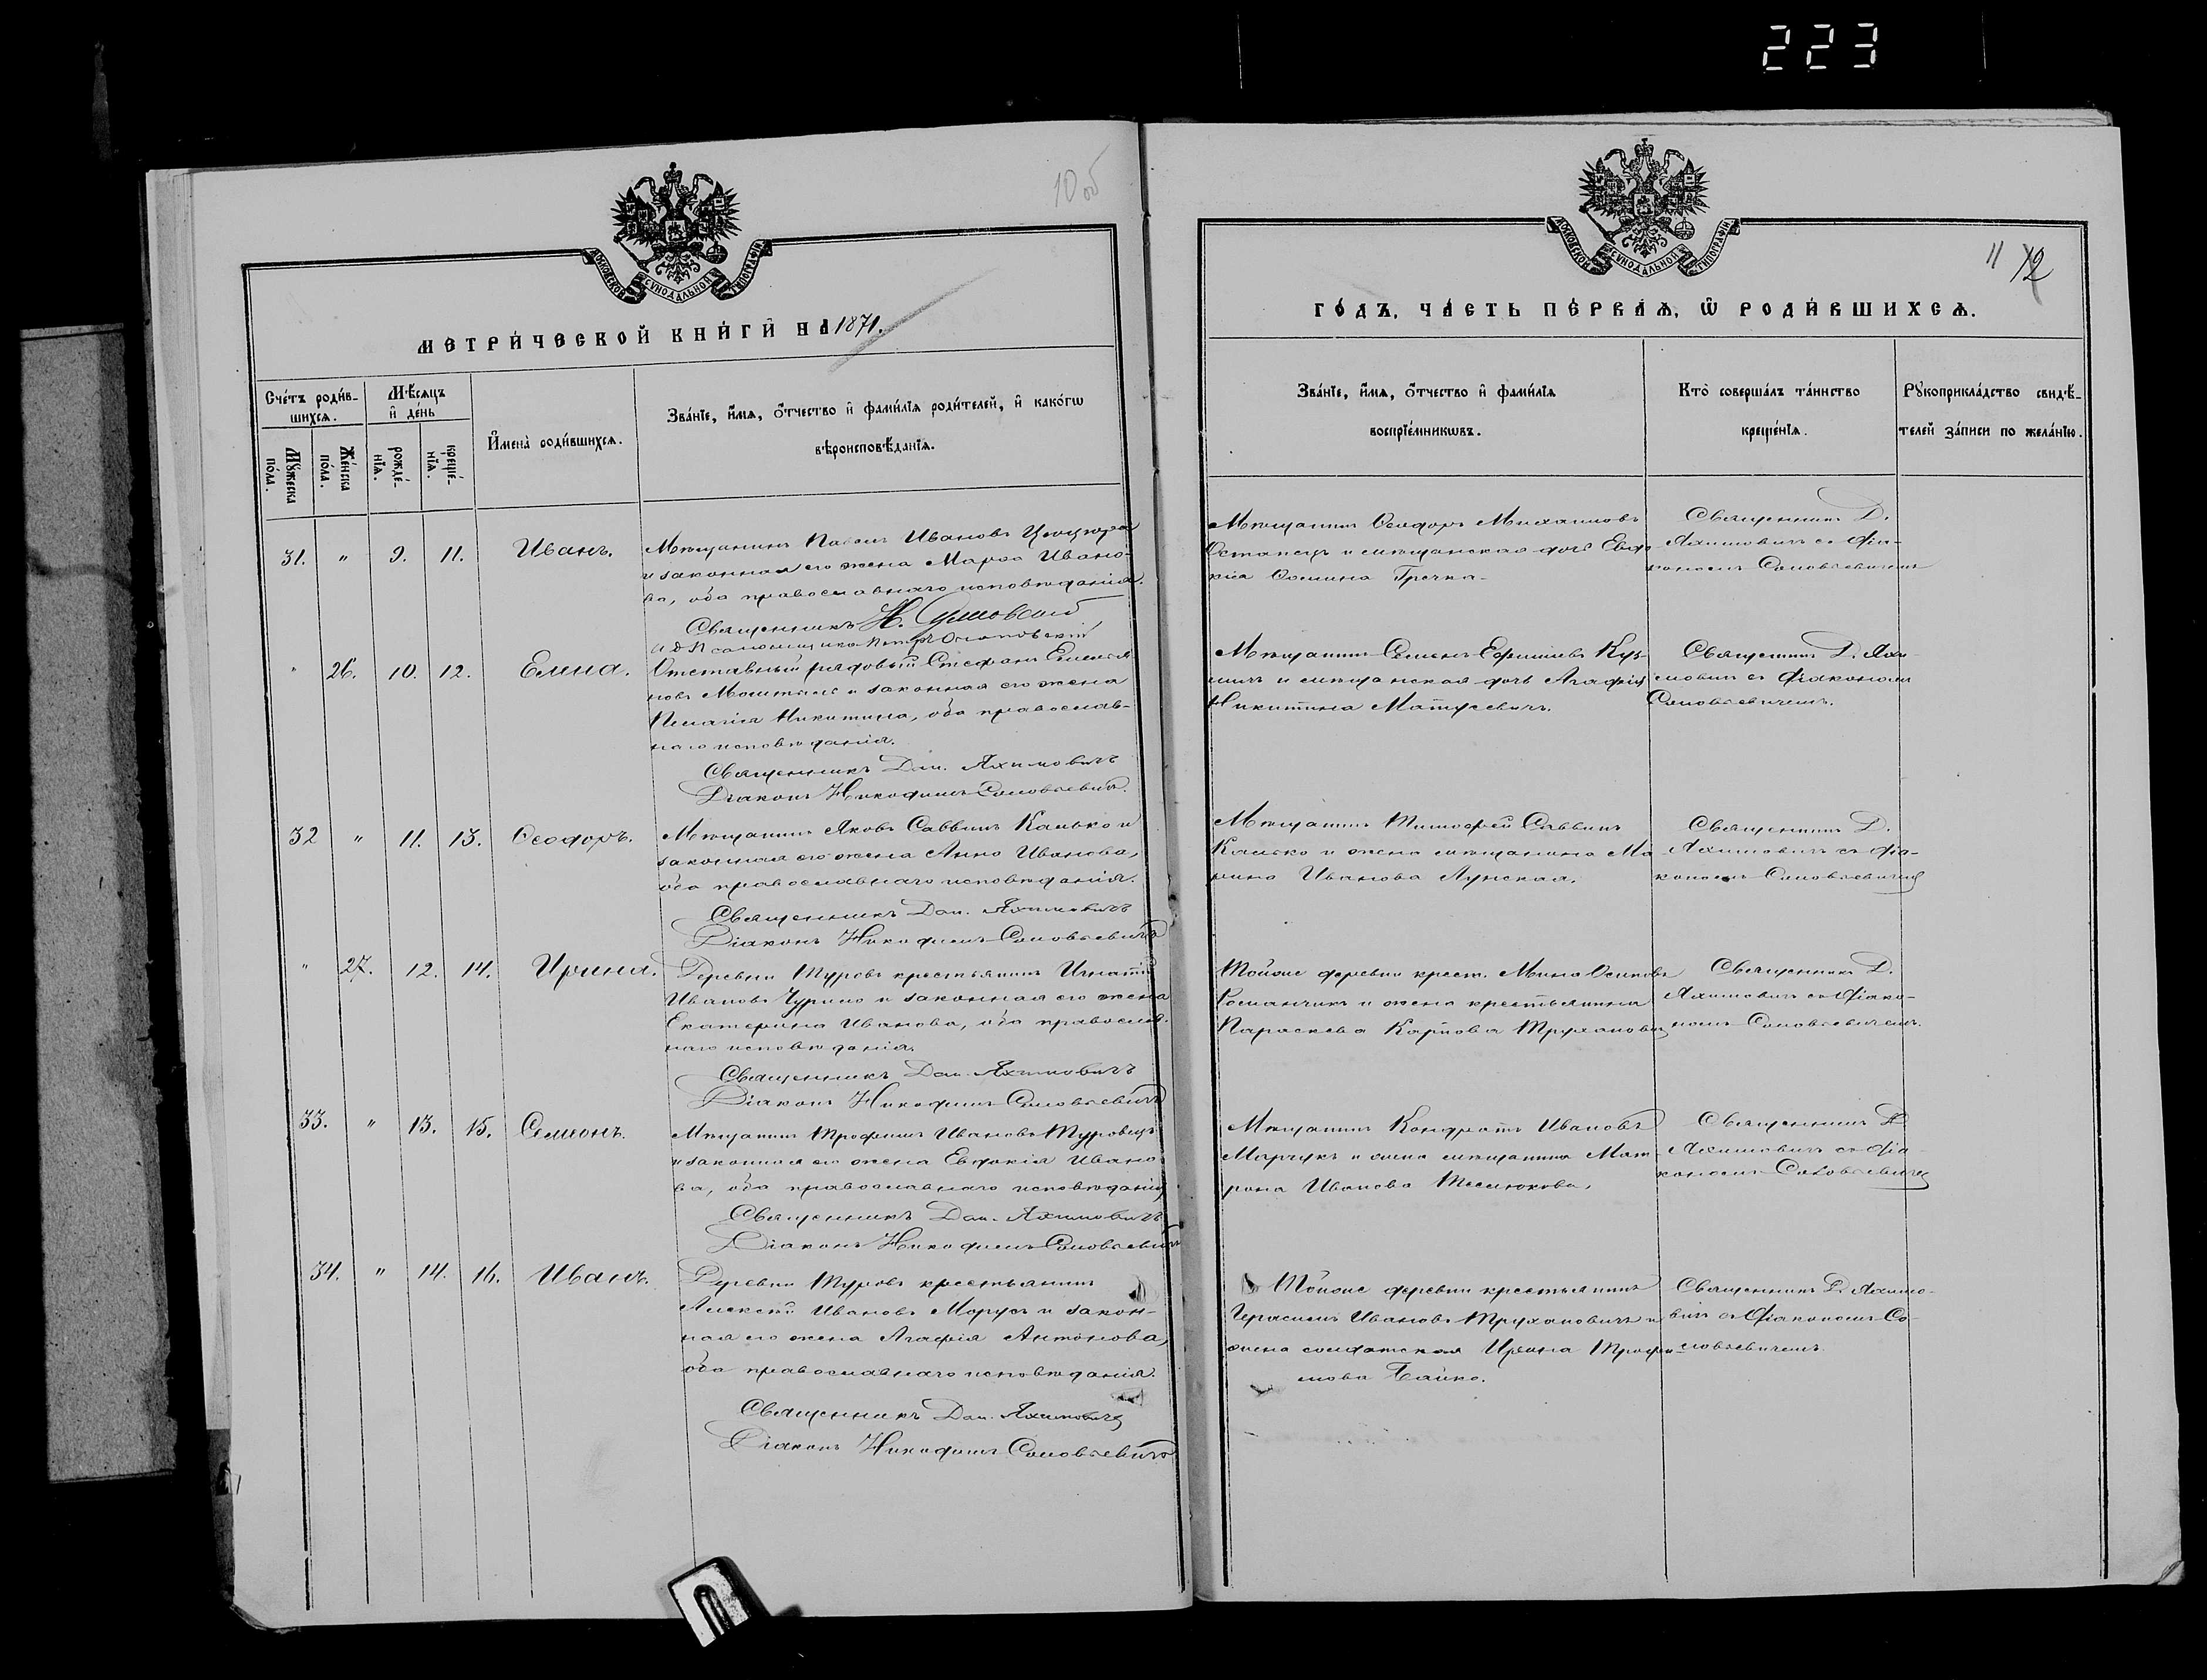 223
10 об
МОСКОВСКОЙ СѴНОДАЛЬНОЙ ТИПОГРАФІИ
МЕТРИ́ЧЕСКОЙ КНИ́ГИ НА 1871.
Сче́тъ роди́в-
шихсѧ.
Мѣ́сѧцъ
и҆ де́нь
Мꙋ́жеска
по́ла.
Же́нска
по́ла.
рожде́-
нїѧ.
креще́-
нїѧ.
И҆мена̀ роди́вшихсѧ.
Зва́нїе, и҆́мѧ, ѻ҆́тчество и҆ фами́лїѧ роди́телей, и҆ како́гѡ
вѣроисповѣ́данїѧ.
31. " 9. 11. Иванъ.
Мѣщанинъ Павелъ Ивановъ
и законная его жена Марѳа Ивано-
ва, оба православнаго исповѣданія.
Священникъ Н.
" 26. 10. 12. Елена.
Отставный рядовый Стефанъ
новъ и законная его жена
Пелагія Никитина, оба православ-
наго исповѣданія.
Священникъ Дан. Яхимовичъ
Діаконъ Никодимъ Соловьевичъ.
32 " 11. 13. Ѳеодоръ.
Мѣщанинъ Яковъ Саввинъ Калько и
законная его жена Анна Иванова,
оба православнаго исповѣданія.
Священникъ Дан. Яхимовичъ
Діаконъ Никодимъ Соловьевичъ
" 27. 12. 14. Ирина.
Деревни Туровъ крестьянинъ Игнатій
Ивановъ Чурило и законная его жена
Екатерина Иванова, оба православ-
наго исповѣданія.
Священникъ Дан. Яхимовичъ
Діаконъ Никодимъ Соловьевичъ
33. " 13. 15. Симеонъ.
Мѣщанинъ Трофимъ Ивановъ Туровецъ
и законная его жена Евдокія Ивано-
ва, оба православнаго исповѣданія
Священникъ Дан. Яхимовичъ
Діаконъ Никодимъ Соловьевичъ
34. " 14. 16. Иванъ.
Деревни Туровъ крестьянинъ
Алексѣй Ивановъ Марусъ и закон-
ная его жена Агафія Антонова,
оба православнаго исповѣданія.
Священникъ Дан. Яхимовичъ
Діаконъ Никодимъ Соловьевичъ
МОСКОВСКОЙ СѴНОДАЛЬНОЙ ТИПОГРАФІИ
11 12
ГО́ДЪ, ЧА́СТЬ ПЕ́РВАѦ, Ѡ҆ РОДИ́ВШИХСѦ.
Зва́нїе, и҆́мѧ, ѻ҆́тчество и҆ фами́лїѧ
воспрїе́мникѡвъ.
Кто̀ соверша́лъ та́инство
креще́нїѧ.
Рꙋкоприкла́дство свидѣ́-
телей за́писи по жела́нїю.
Мѣщанинъ Ѳеодоръ Михаиловъ
Остапецъ и мѣщанская дочь Евдо-
кія Ѳомина Гречка.
Священникъ Д.
Яхимовичъ съ діа-
кономъ Соловьевичемъ
Мѣщанинъ Семенъ Ефимовъ Куз-
мичъ и мѣщанская дочь Агафія
Никитина Матусевичъ.
Священникъ Д. Яхи-
мовичъ съ діакономъ
Соловьевичемъ.
Мѣщанинъ Тимофей Саввинъ
Калько и жена мѣщанина Ма-
рина Иванова Лунская.
Священникъ Д.
Яхимовичъ съ діа-
кономъ Соловьевичемъ
Тойже деревни крест. Мина Осиповъ
Романчикъ и жена крестьянина
Параскева Карпова Труханович
Священникъ Д.
Яхимовичъ съ діако-
номъ Соловьевичемъ.
Мѣщанинъ Кондратъ Ивановъ
Марчукъ и жена мѣщанина Мат-
рона Иванова Теслюкова.
Священникъ Д
Яхимовичъ съ діа-
кономъ Соловьевичем
Тойже деревни крестьянинъ
Герасимъ Ивановъ Трухановичъ и
жена солдатская Ирина Трофи-
мова Байко.
Священникъ Д. Яхимо-
вичъ съ діакономъ Со-
ловьевичемъ